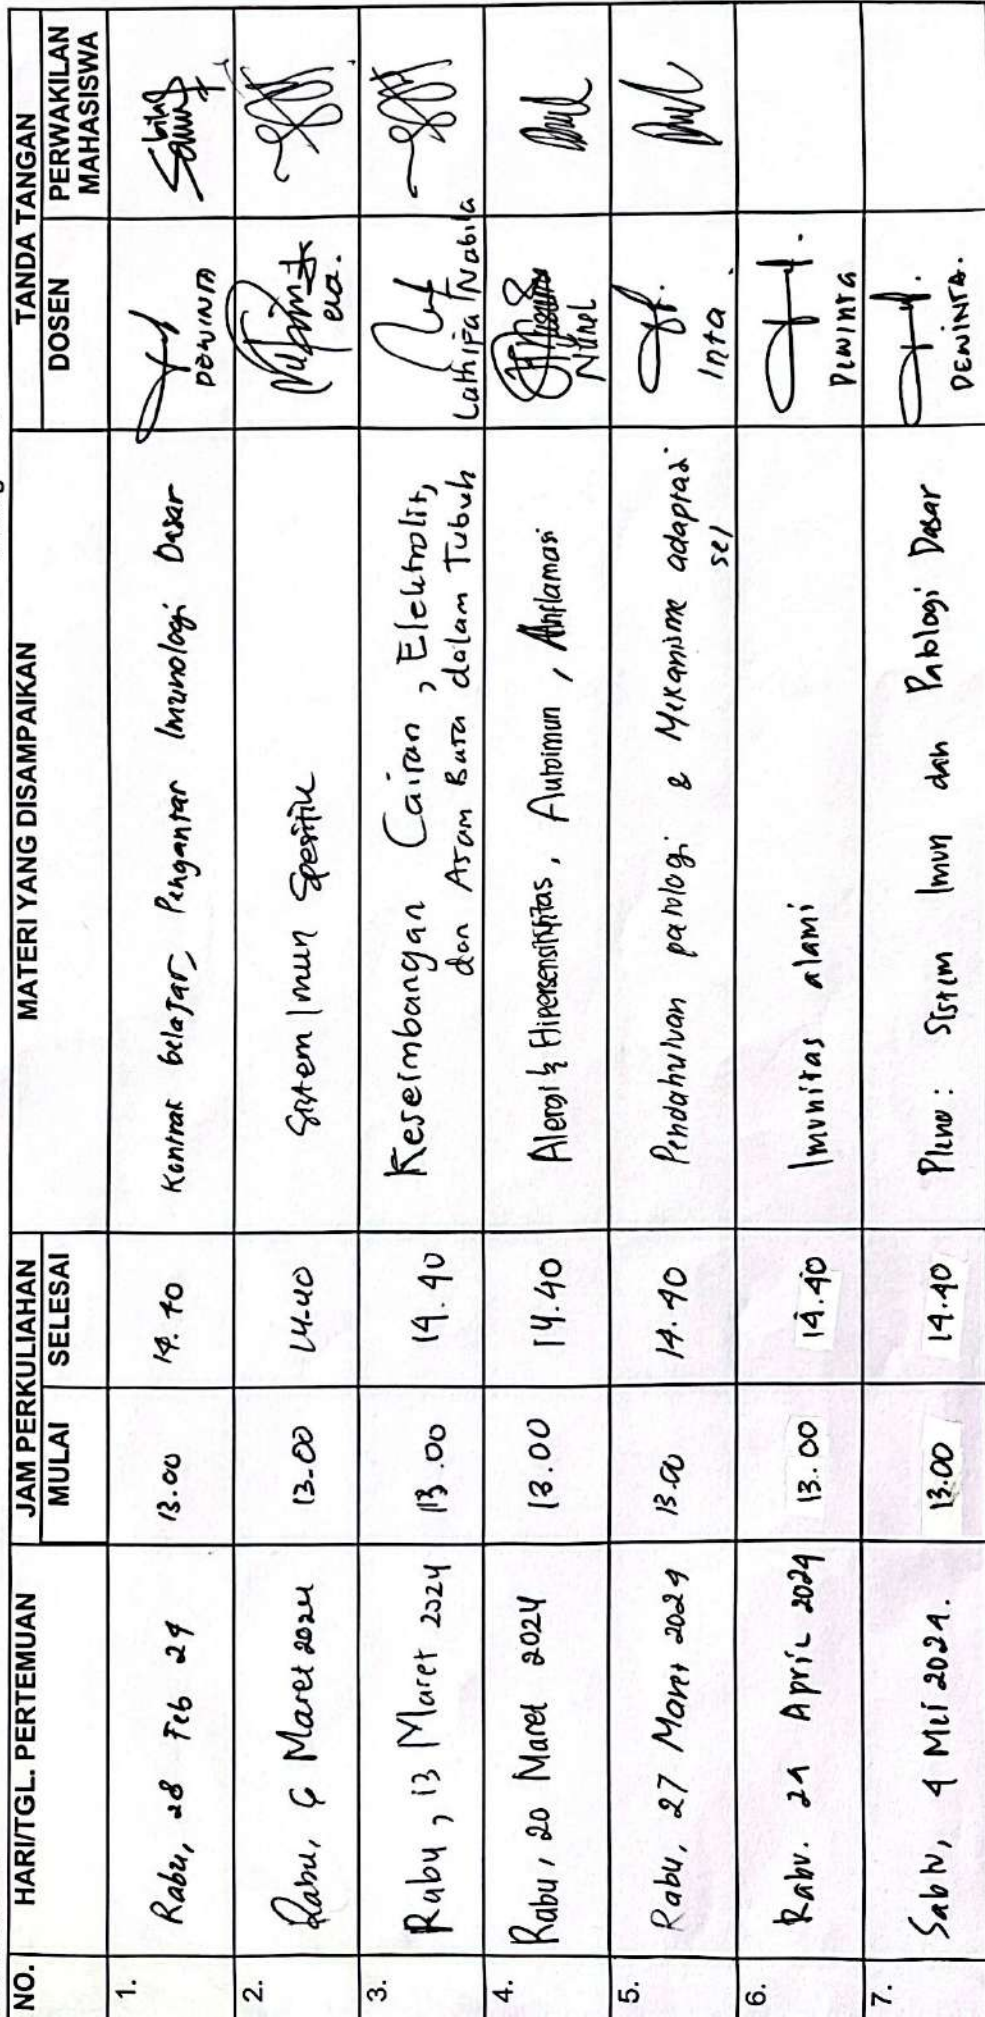 NO.
HARI/TGL. PERTEMUAN
JAM PERKULIAHAN
MULAI
SELESAI
MATERI YANG DISAMPAIKAN
TANDA TANGAN
DOSEN
PERWAKILAN
MAHASISWA
1.
Rabu, 28 Feb 24
13.00
14.40
Kontrak belajar, Pengantar Imunologi Dasar
DEWINTA
2.
Rabu, 6 Maret 2024
13.00
14.40
Sistem Imun Spesifik
eva.
3.
Rabu, 13 Maret 2024
13.00
14.40
Keseimbangan Cairan, Elektrolit,
dan Asam Basa dalam Tubuh
Lathifa Nabila
4.
Rabu, 20 Maret 2024
13.00
14.40
Alergi & Hipersensitivitas, Autoimun, Inflamasi
Nurel
5.
Rabu, 27 Maret 2024
13.00
14.40
Pendahuluan patologi & Mekanisme adaptasi
sel
Inta.
6.
Rabu. 24 April 2024
13.00
14.40
Imunitas alami
Dewinta
7.
Sabtu, 4 Mei 2024.
13.00
14.40
Pleno: Sistem Imun dan Patologi Dasar
DEWINTA.